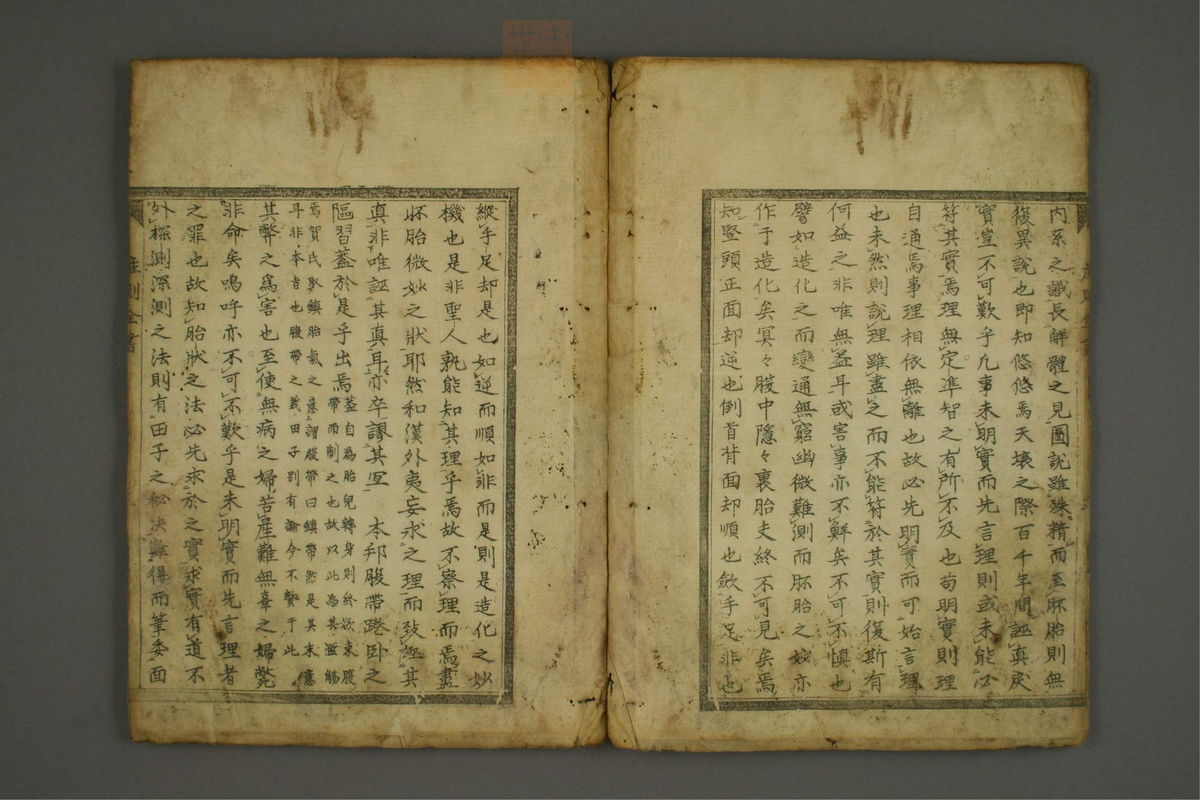 内系之識長解體之見圖說雖殊精而至胚胎則無
復異說也即知悠悠焉天壤之際百千年間誣真戾
實豈不可歎乎凡事未明實而先言理則或未能必
符其實焉理無定準智之有所不及也苟明實則理
自通焉事理相依無離也故必先明實而可始言理
也未然則說理雖盡之而不能符於其實則復斯有
何益之非唯無益耳或害事亦不鮮矣不可不慎也
譬如造化之而變通無窮幽微難測而胚胎之妙亦
作于造化矣冥々腹中隱々裏胎史終不可見矣焉
知豎頭正面却逆也倒首背面却順也斂手足非也
縱手足却是也如逆而順如非而是則是造化之妙
機也是非聖人孰能知其理乎焉故不察理而焉盡
胚胎微妙之狀耶然和漢外夷妄求之理而致誣其
真非唯誣其真耳亦卒謬其冝 本邦腹帶踡卧之
隔習蓋於是乎出焉蓋自為胎兒轉身則終欲束腹
帶而制之也故以此為其濫觴
焉賀氏取鎮胎氣之意謂腹帶曰鎮帶然是其末意
耳非本旨也腹帶之義田子別有論今不贅于此
其弊之為害也至使無病之婦苦產難無辜之婦斃
非命矣嗚呼亦不可不歎乎是未明實而先言理者
之罪也故知胎狀之法必先求於之實求實有道不
外探測深測之法則有田子之秘决難得而筆委面